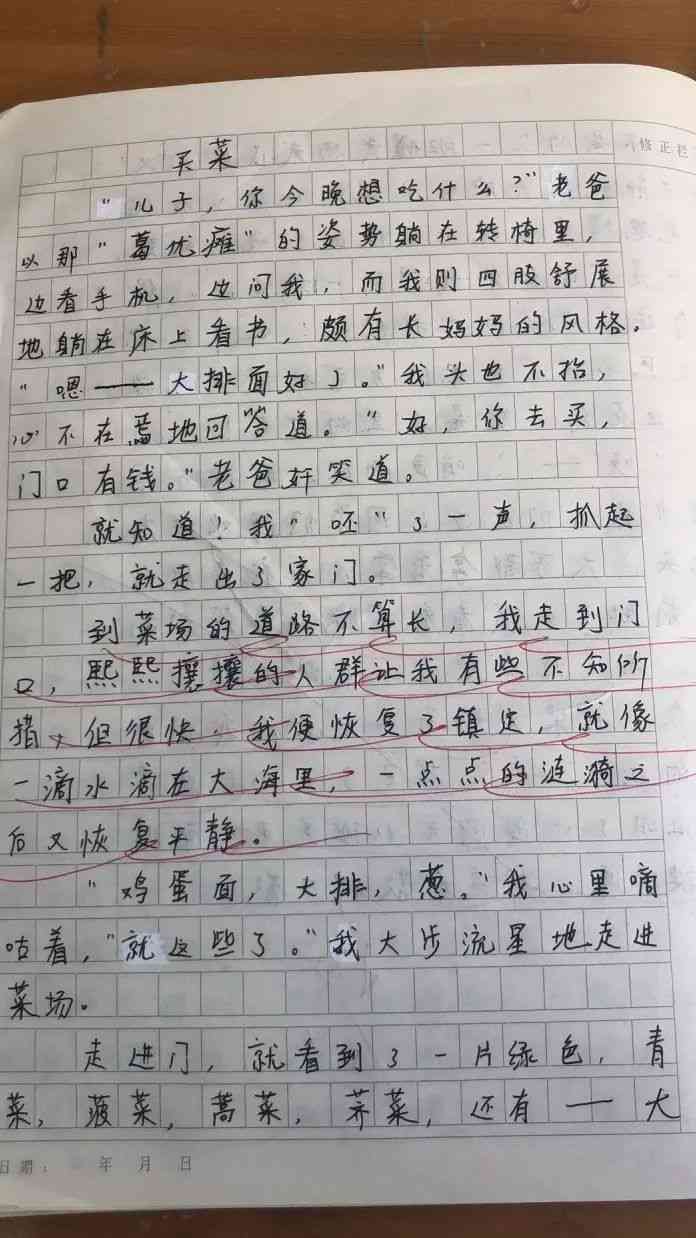 修正栏
买菜
“儿子，你今晚想吃什么？”老爸
以那“葛优瘫”的姿势躺在转椅里，
边看手机，边问我，而我则四肢舒展
地躺在床上看书，颇有长妈妈的风格。
“嗯——大排面好了。”我头也不抬，
心不在焉地回答道。“好，你去买，
门口有钱。”老爸奸笑道。
就知道！我“呸”了一声，抓起
一把，就走出了家门。
到菜场的道路不算长，我走到门
口，熙熙攘攘的人群让我有些不知所
措，但很快，我便恢复了镇定，就像
一滴水滴在大海里，一点点的涟漪之
后又恢复平静。
“鸡蛋面，大排，葱。”我心里嘀
咕着，“就这些了。”我大步流星地走进
菜场。
走进门，就看到了一片绿色，青
菜，菠菜，蒿菜，荠菜，还有——大
日期：　年　月　日